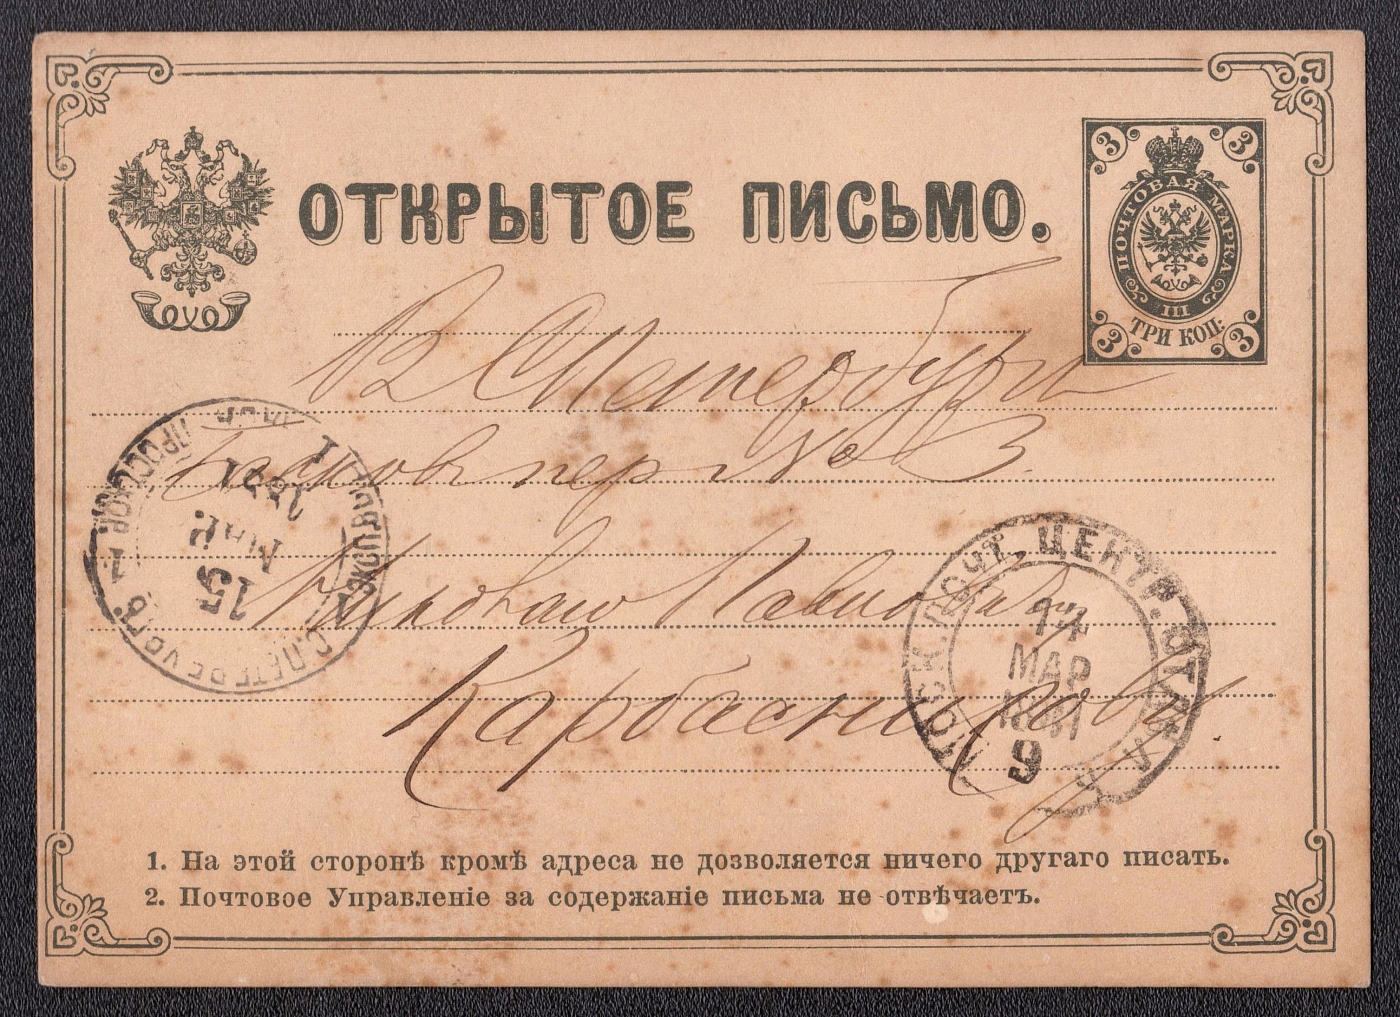 ОТКРЫТОЕ ПИСЬМО.
3 3
ПОЧТОВАЯ МАРКА
III
ТРИ КОП:
3 3
В С Петербургъ
Басковъ пер № 3.
Николаю Павловичу
Карбасникову
МОСК. ПОЧТ. ЦЕНТР. ОТДѢЛ.
14
МАР
1881
9
С. ПЕТЕРБУРГЪ
15
МАР.
1881
I
1. На этой сторонѣ кромѣ адреса не дозволяется ничего другаго писать.
2. Почтовое Управленіе за содержаніе письма не отвѣчаетъ.